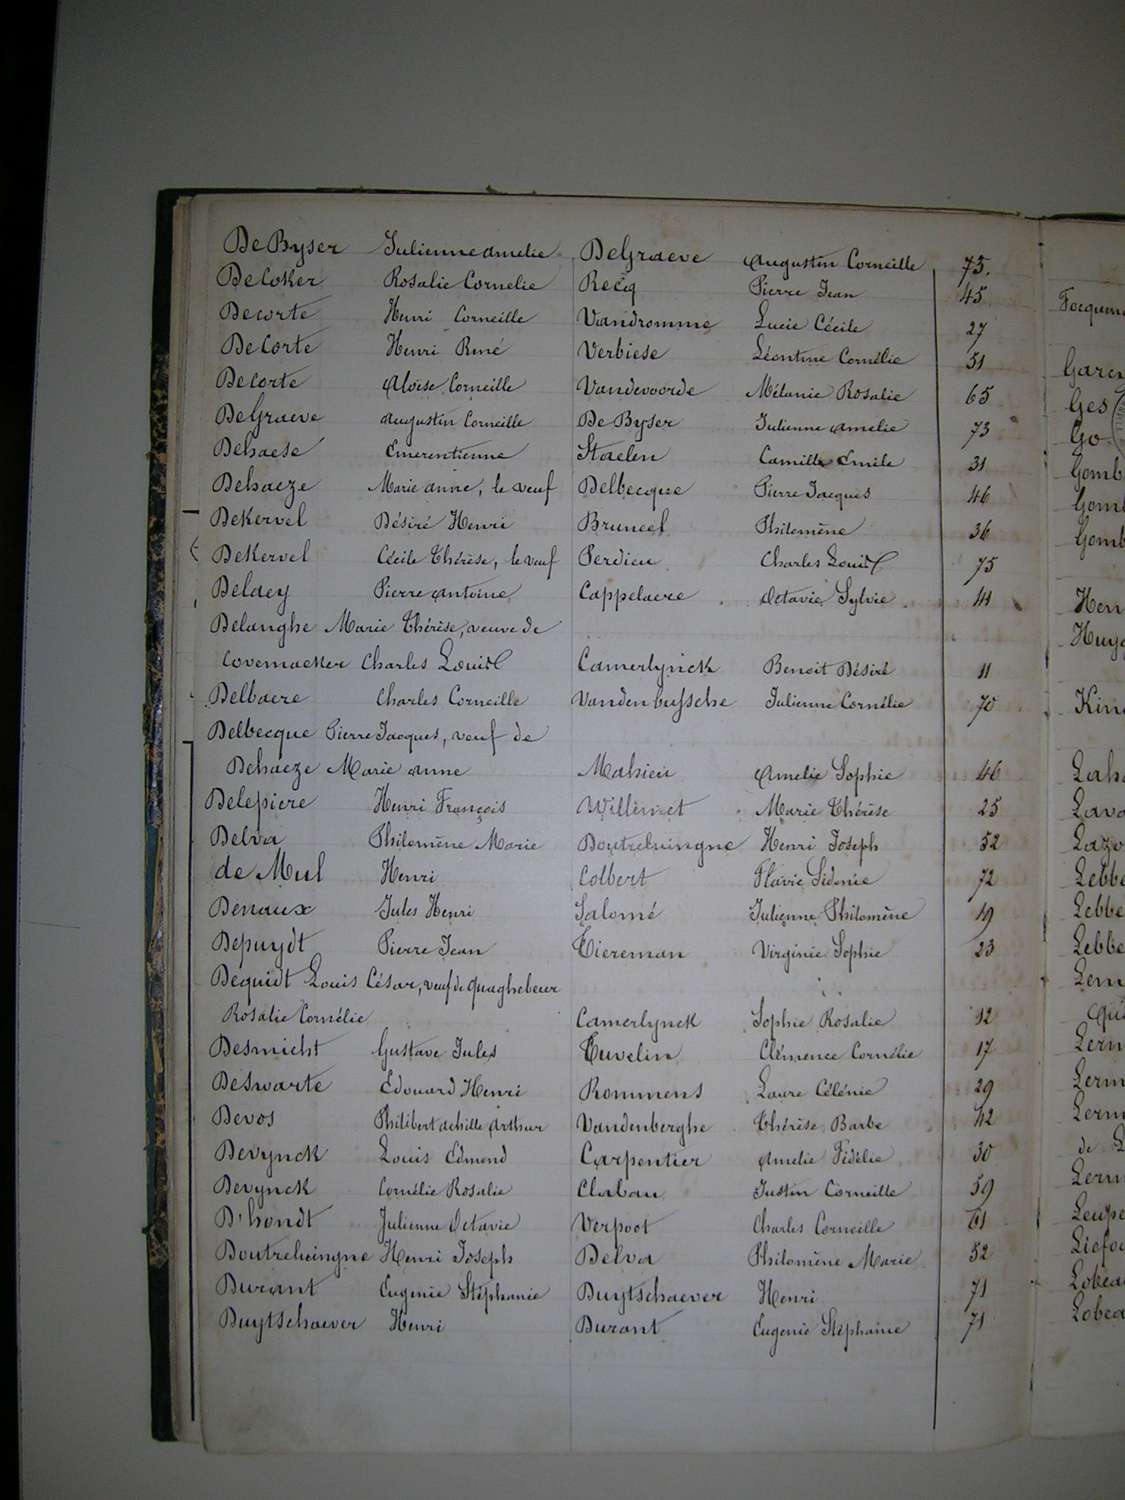 DeByser Julienne Amelie DeGraeve Augustin Corneille 75.
DeCoker Rosalie Cornelie Recq Pierre Jean 45
Decorte Henri Corneille Vandromme Lucie Cécile 27
DeCorte Henri René Verbiese Léontine Cornélie 51
Decorte Aloise Corneille Vandevoorde Mélanie Rosalie 65
DeGraeve Augustin Corneille De Byser Julienne Amelie 73
Dehaese Emerentienne Staelen Camille Emile 31
Dehaeze Marie Anne, le veuf Delbecque Pierre Jacques 46
DeKervel Désiré Henri Bruneel Philomène 36
DeKervel Cécile Thérèse, le veuf Perdieu Charles Louis 75
Delaey Pierre Antoine Cappelaere Octavie Sylvie 41
Delanghe Marie Thérèse, veuve de
Covemaeker Charles Louis Camerlynck Benoit Désiré 11
Delbaere Charles Corneille Vandenbussche Julienne Cornélie 70
Delbecque Pierre Jacques, veuf de
Dehaeze Marie Anne Mahieu Amelie Sophie 46
Delepiere Henri François Willemet Marie Thérèse 25
Delva Philomène Marie Doutreluingne Henri Joseph 52
de Mul Henri Colbert Flavie Sidonie 72
Denaux Jules Henri Salomé Julienne Philomène 19
Depuydt Pierre Jean Tiereman Virginie Sophie 23
Dequidt Louis César, veuf de Quaghebeur
Rosalie Cornélie Camerlynck Sophie Rosalie 12
Desmicht Gustave Jules Tuvelin Clémence Cornélie 17
Deswarte Edouard Henri Rommens Laure Célénie 29
Devos Philibert Achille Arthur Vandenberghe Thérèse Barbe 42
Devynck Louis Edmond Carpentier Amelie Fidélie 30
Devynck Cornélie Rosalie Clabau Justin Corneille 59
D'hondt Julienne Octavie Verpoot Charles Corneille 61
Doutreluingne Henri Joseph Delva Philomène Marie 52
Durant Eugenie Stéphanie Duytschaever Henri 71
Duytschaever Henri Durant Eugenie Stéphanie 71